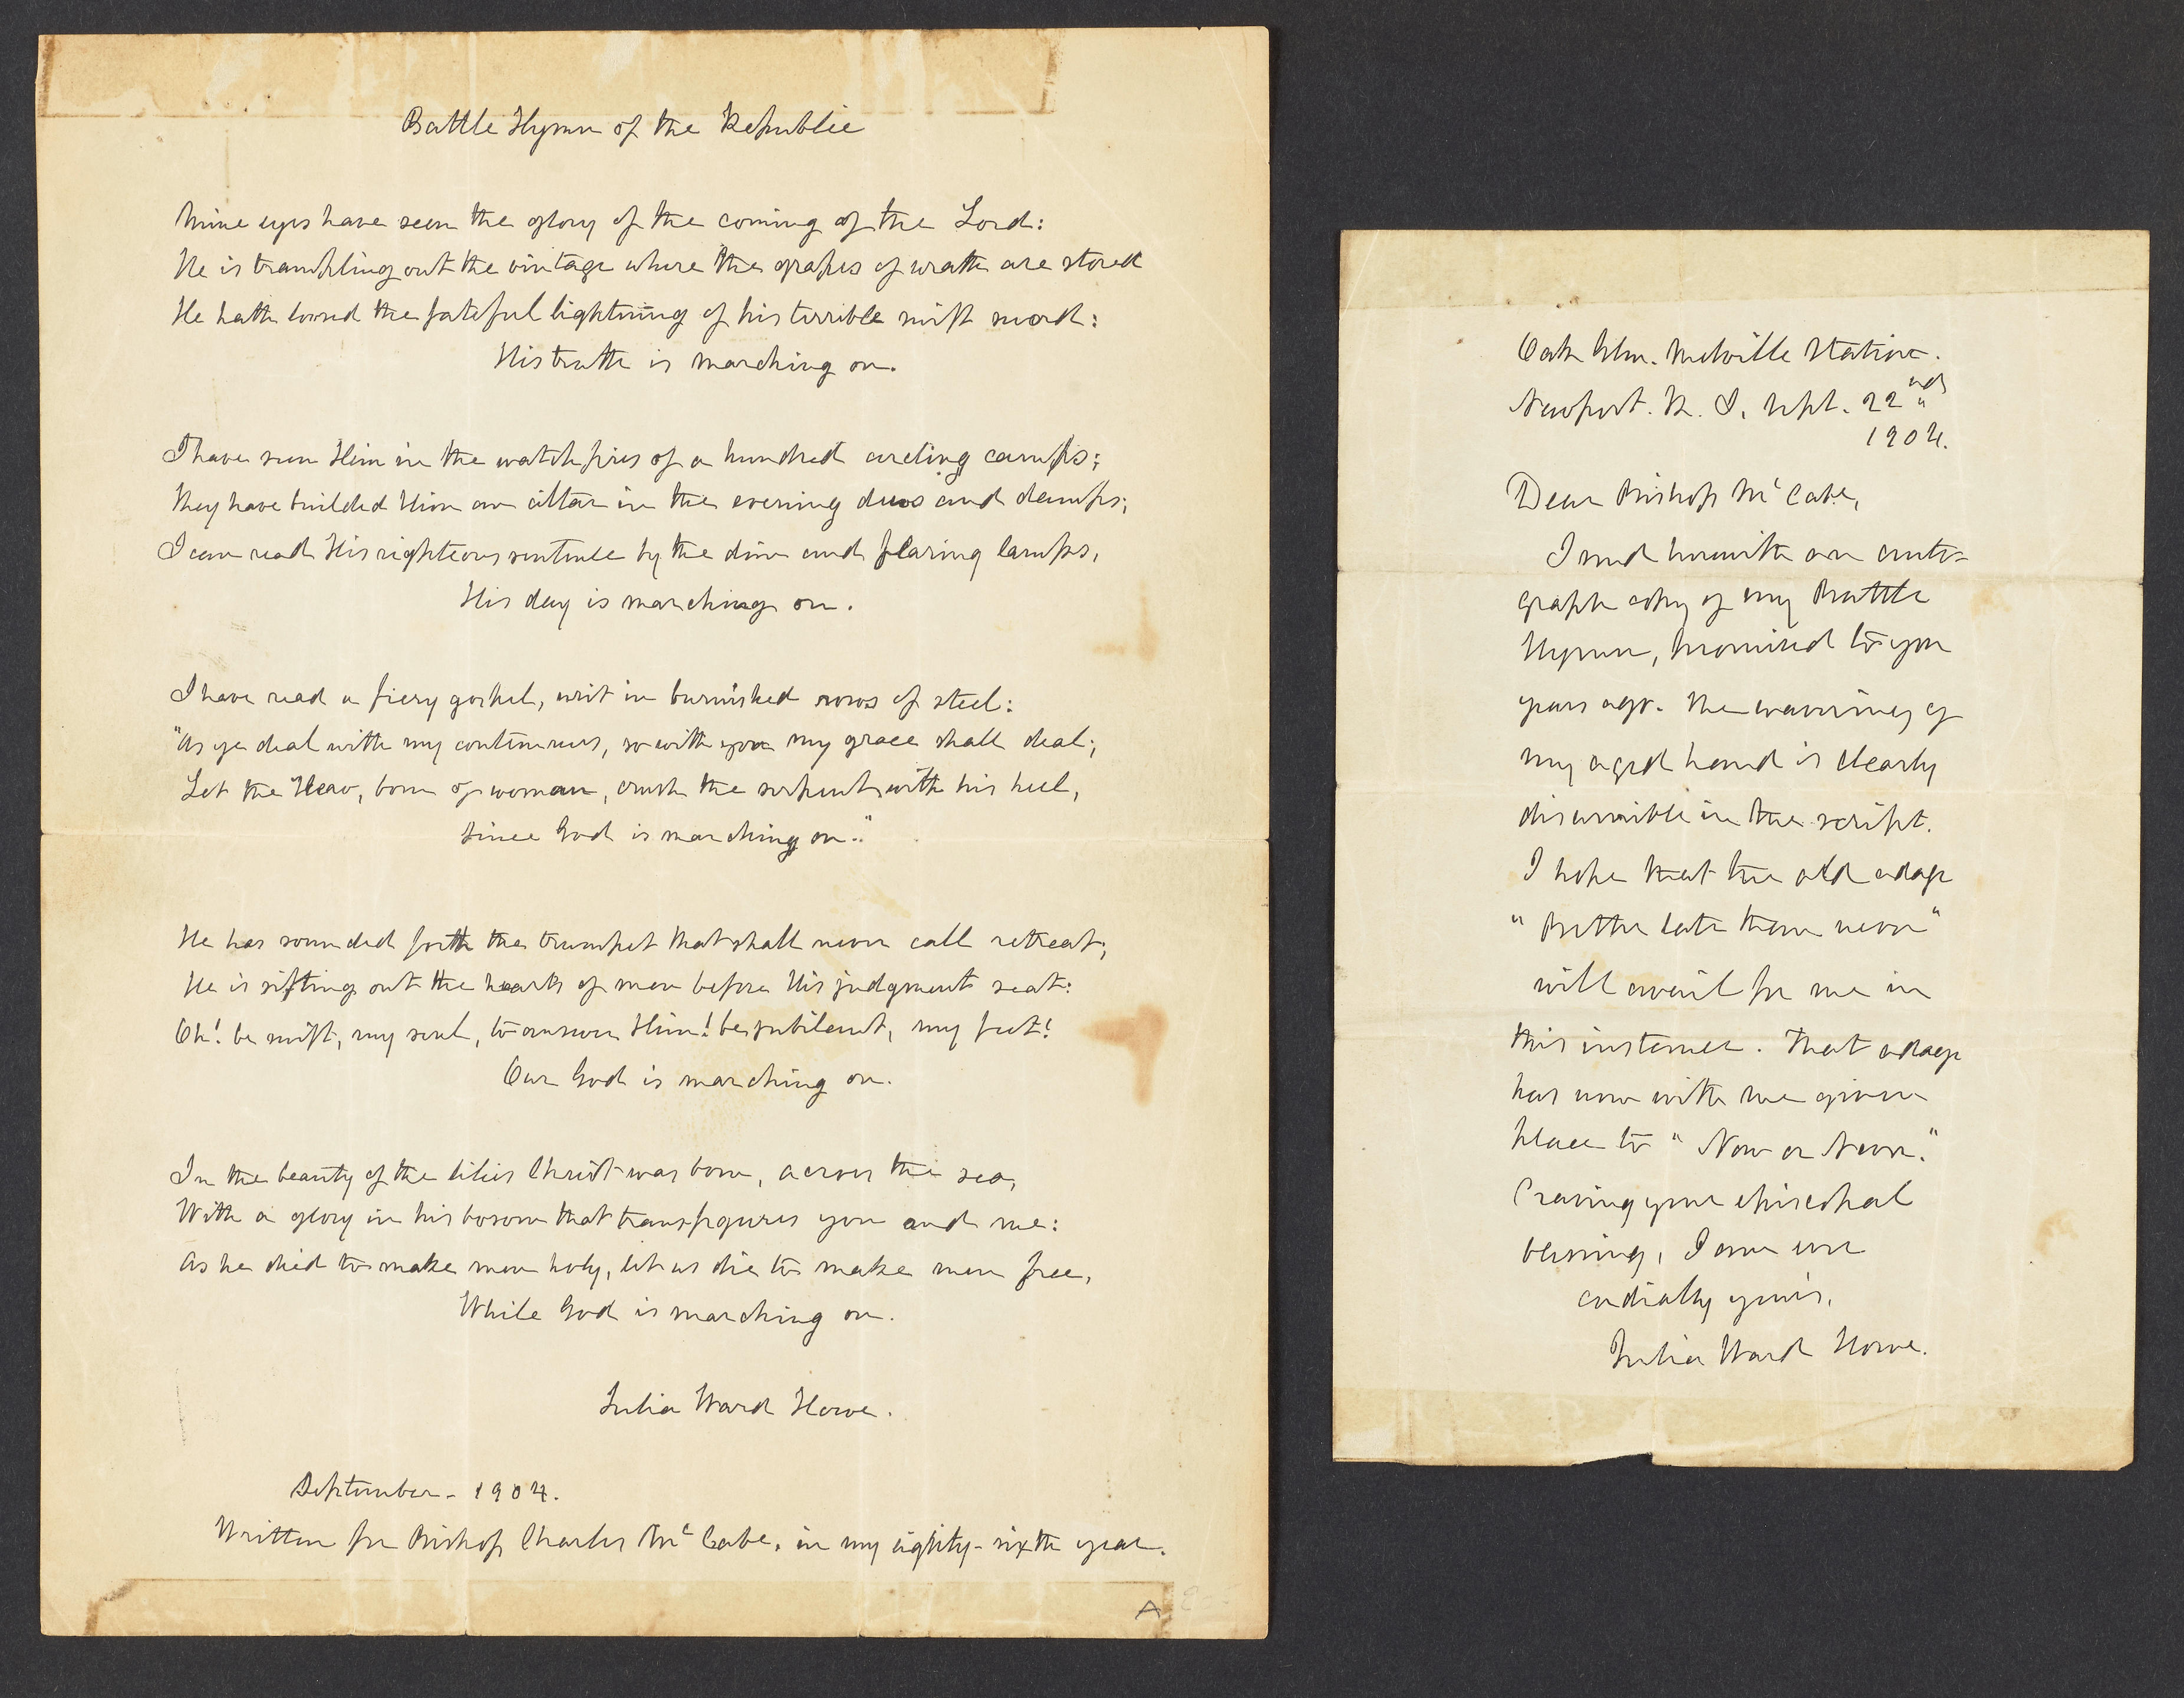 Battle Hymn of the Republic
Mine eyes have seen the glory of the coming of the Lord:
He is trampling out the vintage where the grapes of wrath are stored
He hath loosed the fateful lightning of his terrible swift sword:
His truth is marching on.
I have seen Him in the watchfires of a hundred circling camps;
They have builded Him an altar in the evening dews and damps;
I can read His righteous sentence by the dim and flaring lamps,
His day is marching on.
I have read a fiery gospel, writ in burnished rows of steel:
"As ye deal with my contemners, so with you my grace shall deal;
Let the Hero, born of woman, crush the serpent with his heel,
Since God is marching on."
He has sounded forth the trumpet that shall never call retreat;
He is sifting out the hearts of men before His judgment seat:
Oh! be swift, my soul, to answer Him! be jubilant, my feet!
Our God is marching on.
In the beauty of the lilies Christ was born, across the sea,
With a glory in his bosom that transfigures you and me:
As he died to make men holy, let us die to make men free,
While God is marching on.
Julia Ward Howe.
September - 1904.
Written for Bishop Charles McCabe, in my eighty-sixth year.
A
Oak Glen. Melville Station.
Newport. R. I. Sept. 22nd
1904.
Dear Bishop McCabe,
I send herewith an auto-
graph copy of my Battle
Hymn, promised to you
years ago. The wavering of
my aged hand is clearly
discernible in the script.
I hope that the old adage
"Better late than never"
will avail for me in
this instance. That adage
has now with me given
place to "Now or Never."
Craving your episcopal
blessing, I am ever
cordially yours,
Julia Ward Howe.